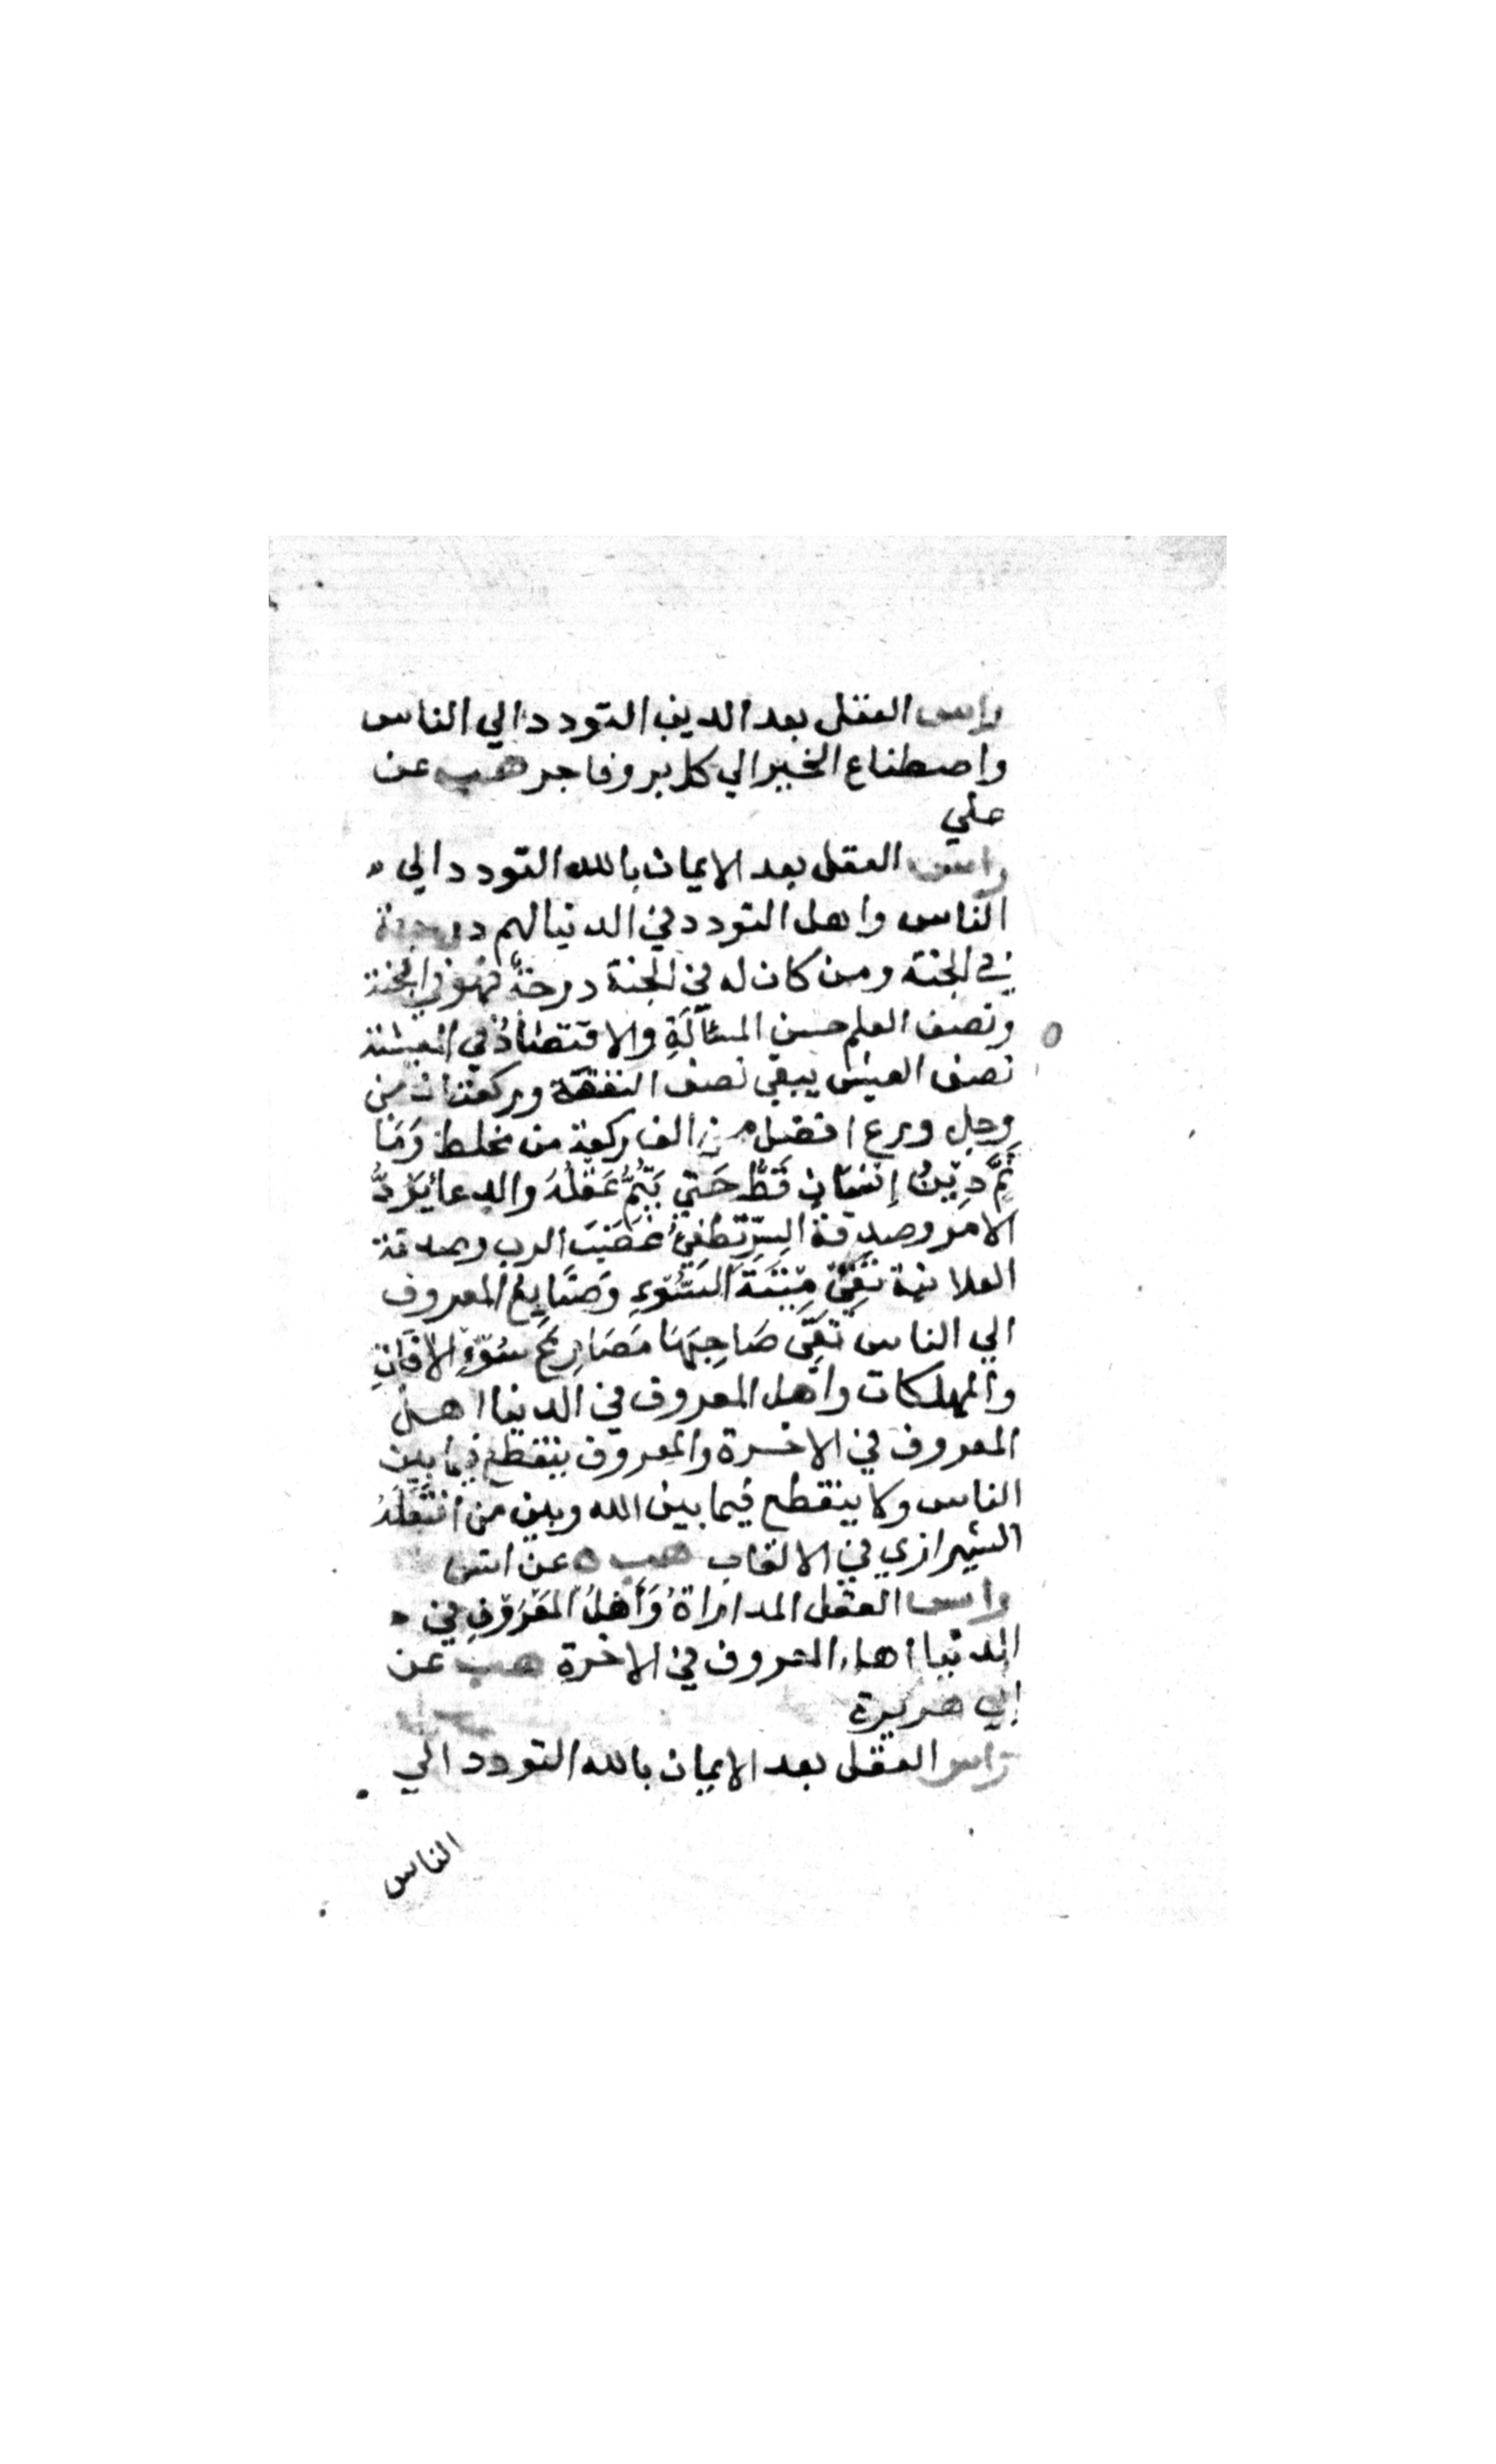 راس العقل بعد الدين التودد الي الناس
واصطناع الخير الي كل بر وفاجر هب عن
علي
راس العقل بعد الايمان بالله التودد الي
الناس واهل التودد في الدنيا لهم درجة
في الجنة ومن كان له في الجنة درجةٌ فهو في الجنة
ونصف العلم حسن المسَٔالَةِ والاقتصادُ في المعيشة
نصف العيش يبقي نصف النفقة وركعتان من
رجل ورع افضل من الف ركعة من مخلط وَمَا
تمَّ دِينُ إنسَانٍ قَطُّ حَتّي يَتِمُّ عَقْلُهُ والدعا يَرُدُّ
الامر وصدقةُ السِّرِّ تطْفِئُ غَضَبَ الرب وصدقة
العلانية تَقِي مِيْتَةَ السُّوْءِ وَصَنَايِعُ المعروف
الي الناس تَقِي صَاحِبَهَا مَصَارِعَ سُوْءِ الآفَاتِ
والمهلكات واهل المعروف في الدنيا اهل
المعروف في الاخرة والمعروف ينقطع فيما بين
الناس ولا ينقطع فيما بين الله وبين من افتَعَلَهُ
الشيرازي في الالقاب هب عن انس
راس العقل المداراةُ وَأَهْلُ المَعْرُوْفِ في
الدنيا اهل المعروف في الاخرة هب عن
ابي هريرة
راس العقل بعد الايمان بالله التودد الي
الناس